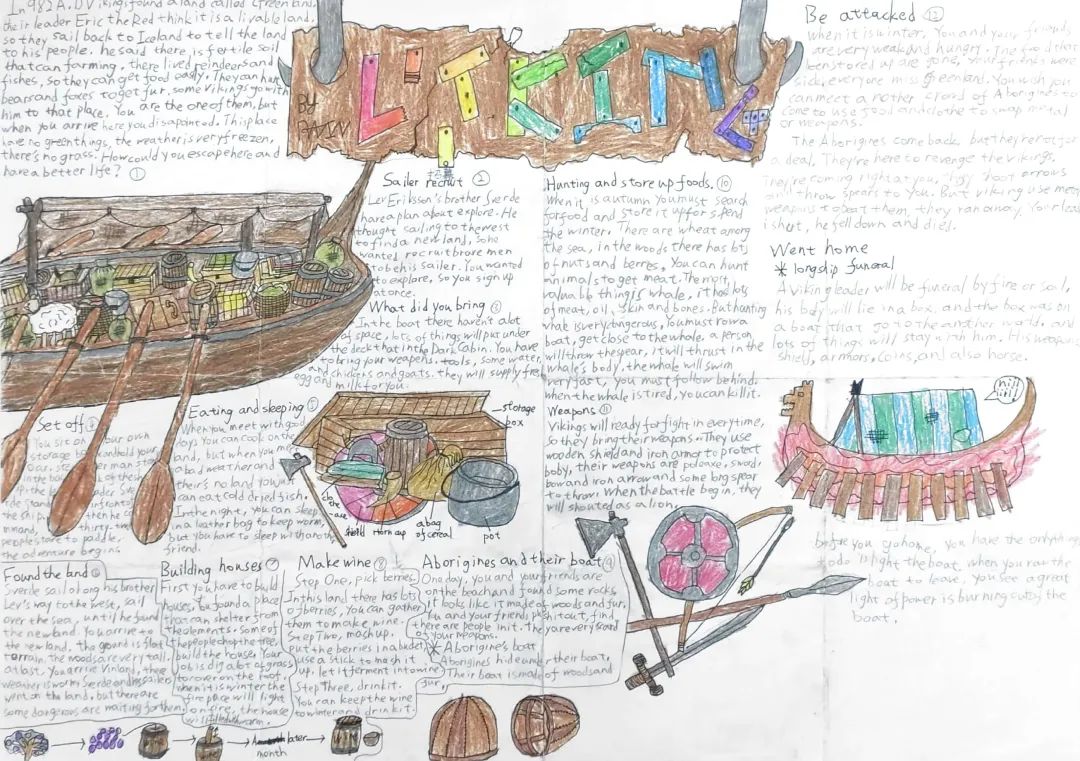 In 982 A.D Vikings found a land called Greenland.
their leader Eric the Red think it is a livable land.
so they sail back to Iceland to tell the land
to his people. he said there is fertile soil
that can farming. there lived reindeers and
fishes, so they can get food easily. They can hunt
bears and foxes to get fur. some Vikings go with
him to that place. You are the one of them, but
when you arrive here you disapointed. This place
have no green things, the weather is very freezen,
there's no grass. How could you escape here and
have a better life? ①
BY
VIKING
招募
Sailer recruit ②
Lev Eriksson's brother Sverde
have a plan about explore. He
thought sailing to the west
to find a new land, So he
wanted recruit brave men
to be his sailer. You wanted
to explore, so You sign up
at once.
What did you bring ③
In the boat there haven't a lot
of space, lots of things will put under
the deck that in the Dark Cabin. You have
to bring your weapons, tools, some water,
and chickens and goats. they will supply fresh
egg and milk for you.
Set off ④
You sit on your own
storage box and hold your
oar.
the adventure begins.
Eating and sleeping ⑤
When you meet with good
days You can cook on the
land, but when you meet
a bad weather and
there's no land you just
can eat cold dried fish.
In the night, you can sleep
in a leather bag to keep worm,
but you have to sleep with another
friend.
storage
box
shield
Horn cup
a bag
of cereal
pot
Found the land ⑥
Sverde sail along his brother
Lev's way to the west, sail
over the sea, until he found
the new land. You arrive to
the new land, the ground is flat
terrain, the woods are very tall.
at last You arrive Vinland, the
weather is worm Sverde and his sailer
went on the land, but there are
some dangerous are waiting for them.
Building houses ⑦
First you have to build
house, You found a place
that can shelter from
the elements. Some of
the people chop the tree,
build the house. Your
Job is dig a lot of grass
to cover on the roof.
when it is winter the
fire place will light
on fire, the house
will warm.
Make wine ⑧
Step One, pick berries.
In this land there has lots
of berries, You can gather
them to make wine.
Step Two, mash up.
Put the berries in a bucket,
use a stick to mash it
up. let it ferment into wine
Step Three, drink it.
You can keep the wine
to winter and drink it.
later
month
Aborigines and their boat ⑨
One day, you and your friends are
on the beach and found some rocks,
It looks like it made of woods and fur.
You and your friends push it out, find
there are people in it. They are very scared
of your weapons.
* Aborigine's boat
Aborigines hide under their boat,
Their boat is made of woods and
fur.
Hunting and store up foods. ⑩
When it is autumn You must search
for food and store it up for spend
the winter. There are wheat among
the sea, in the woods there has lots
of nuts and berries, You can hunt
animals to get meat. The most
valuable thing is whale, it has lots
of meat, oil, skin and bones. But hunting
whale is very dangerous, You must row a
boat, get close to the whale, a person
will throw the spear, it will thrust in the
whale's body. the whale will swim
very fast, you must follow behind.
when the whale is tired, You can kill it.
Weapons ⑪
Vikings will ready for fight in every time,
so they bring their weapons. They use
wooden shield and iron armor to protect
boby, their weapons are poleaxe, sword,
bow and iron arrow and some long spear
to throw. When the battle begin, they
will shouted as a lion.
Be attacked ⑫
when it is winter. You and your friends
are very weak and hungry. The food that
been stored up are gone, Your friends were
sick, everyone miss greenland. You wish you
can meet a nother crowd of Aborigines to
come to use food and clothe to swap metal
or weapons.
The Aborigines come back, but they're not for
a deal, They're here to revenge the vikings.
They're coming right at you, They shoot arrows
and throw spears to you. But viking use metal
weapons to beat them, they ran away. Your leader
is hurt, he fell down and died.
Went home
* longship funeral
A viking leader will be funeral by fire or soil,
his body will lie in a box, and the box was on
a boat that go to the another world. and
lots of things will stay with him. His weapons
shield, armors, coins, and also horse.
before you go home, you have the only thing
to do is light the boat. when you ran the
boat to leave, You see a great
light of power is burning out by the
boat.